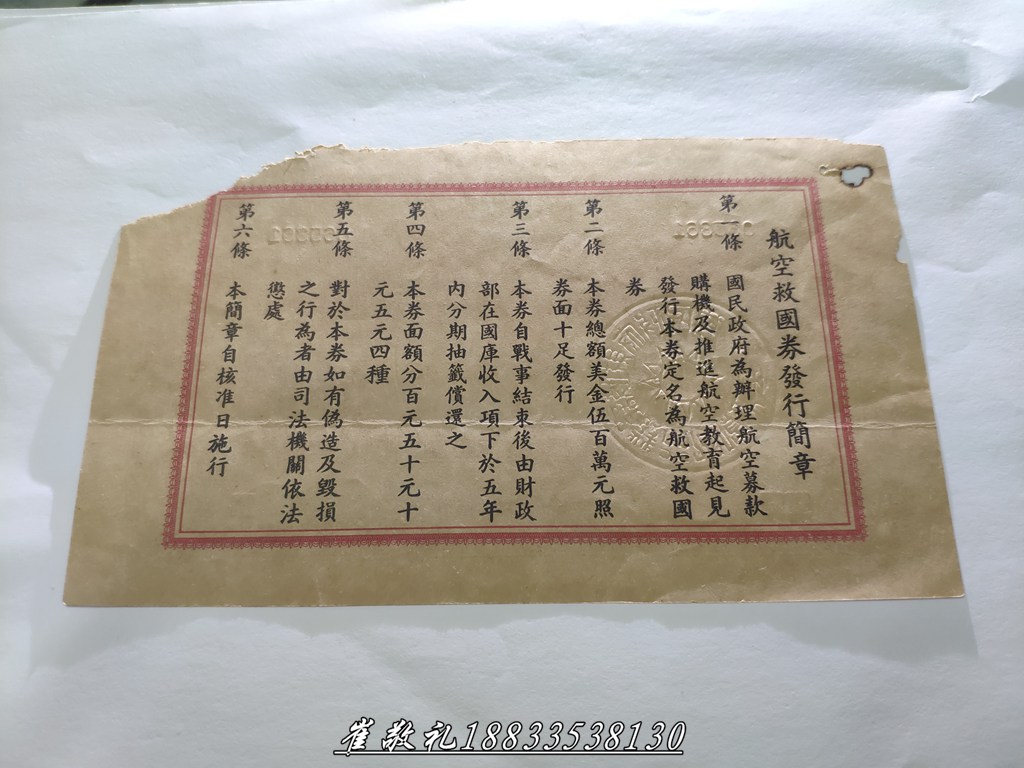 航空救國券發行簡章
第一條
國民政府為辦理航空募款
購機及推進航空教育起見
發行本券定名為航空救國
券
第二條
本券總額美金伍百萬元照
券面十足發行
第三條
本券自戰事結束後由財政
部在國庫收入項下於五年
內分期抽籤償還之
第四條
本券面額分百元五十元十
元五元四種
第五條
對於本券如有偽造及毀損
之行為者由司法機關依法
懲處
第六條
本簡章自核准日施行
崔敬礼18833538130